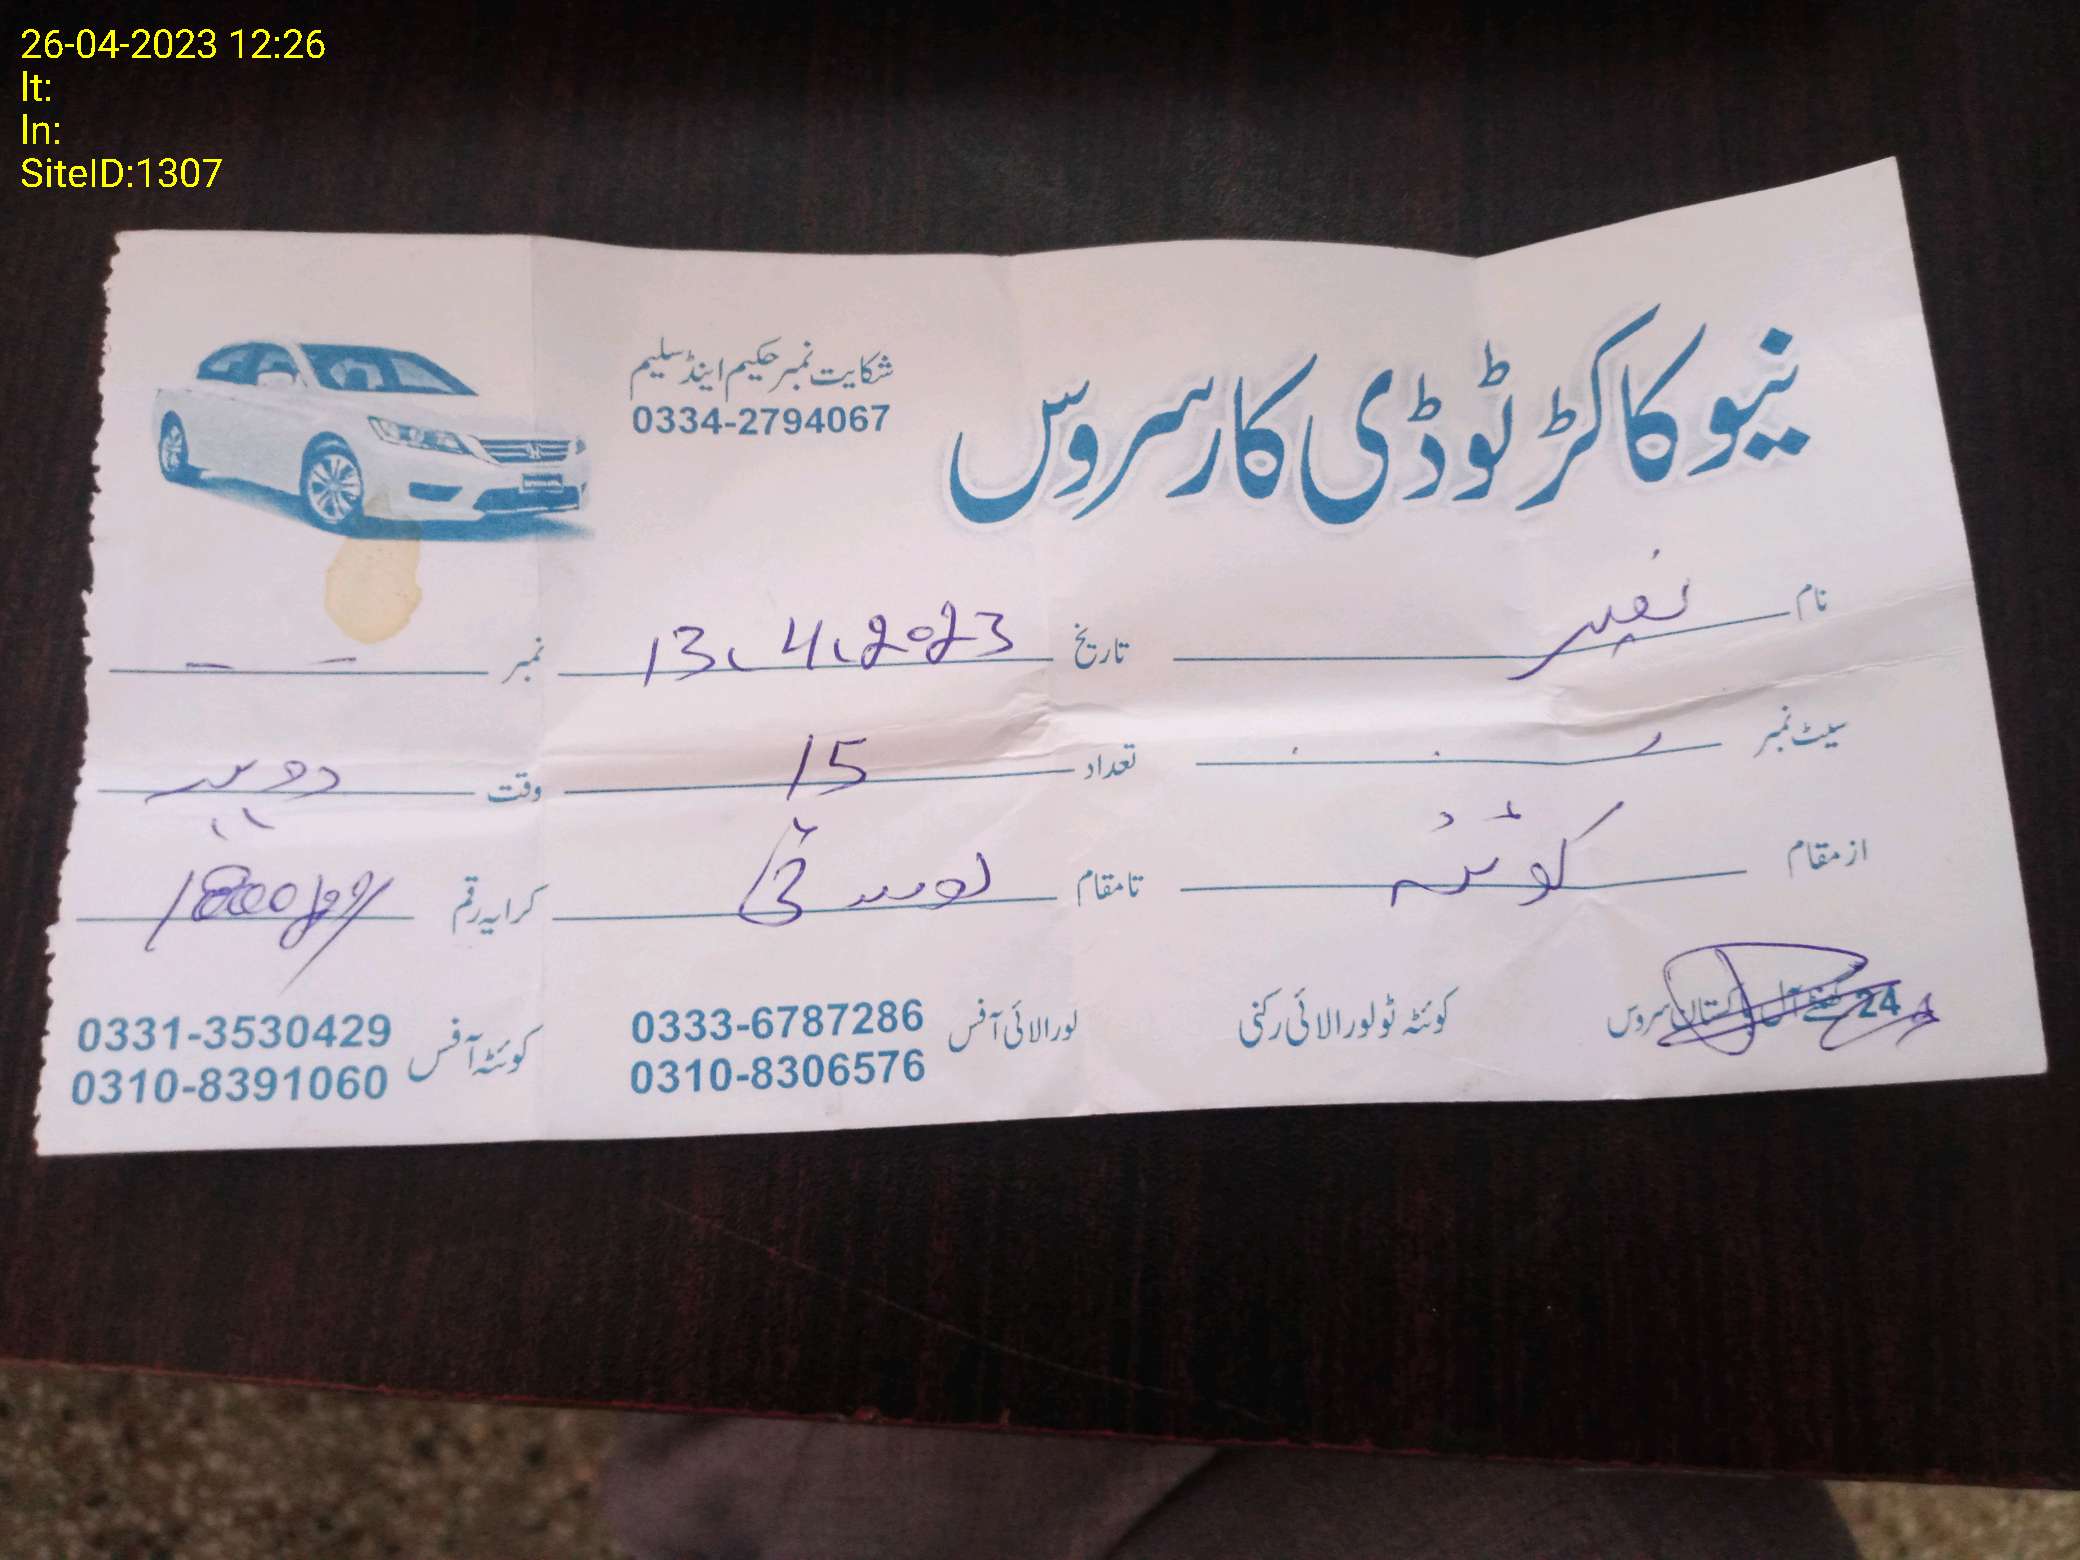 26-04-2023 12:26
lt:
ln:
SiteID:1307
نیو کاکڑ ٹوڈی کار سروس
شکایت نمبر حکیم اینڈ سلیم
0334-2794067
نام تاریخ 13.4.2023 نمبر
سیٹ نمبر تعداد 15 وقت دوپہر
از مقام کوئٹہ تا مقام کرایہ رقم
24 گھنٹے آل پاکستان سروس کوئٹہ ٹو لورالائی رکنی لورالائی آفس 0333-6787286 کوئٹہ آفس 0331-3530429
0310-8306576 0310-8391060